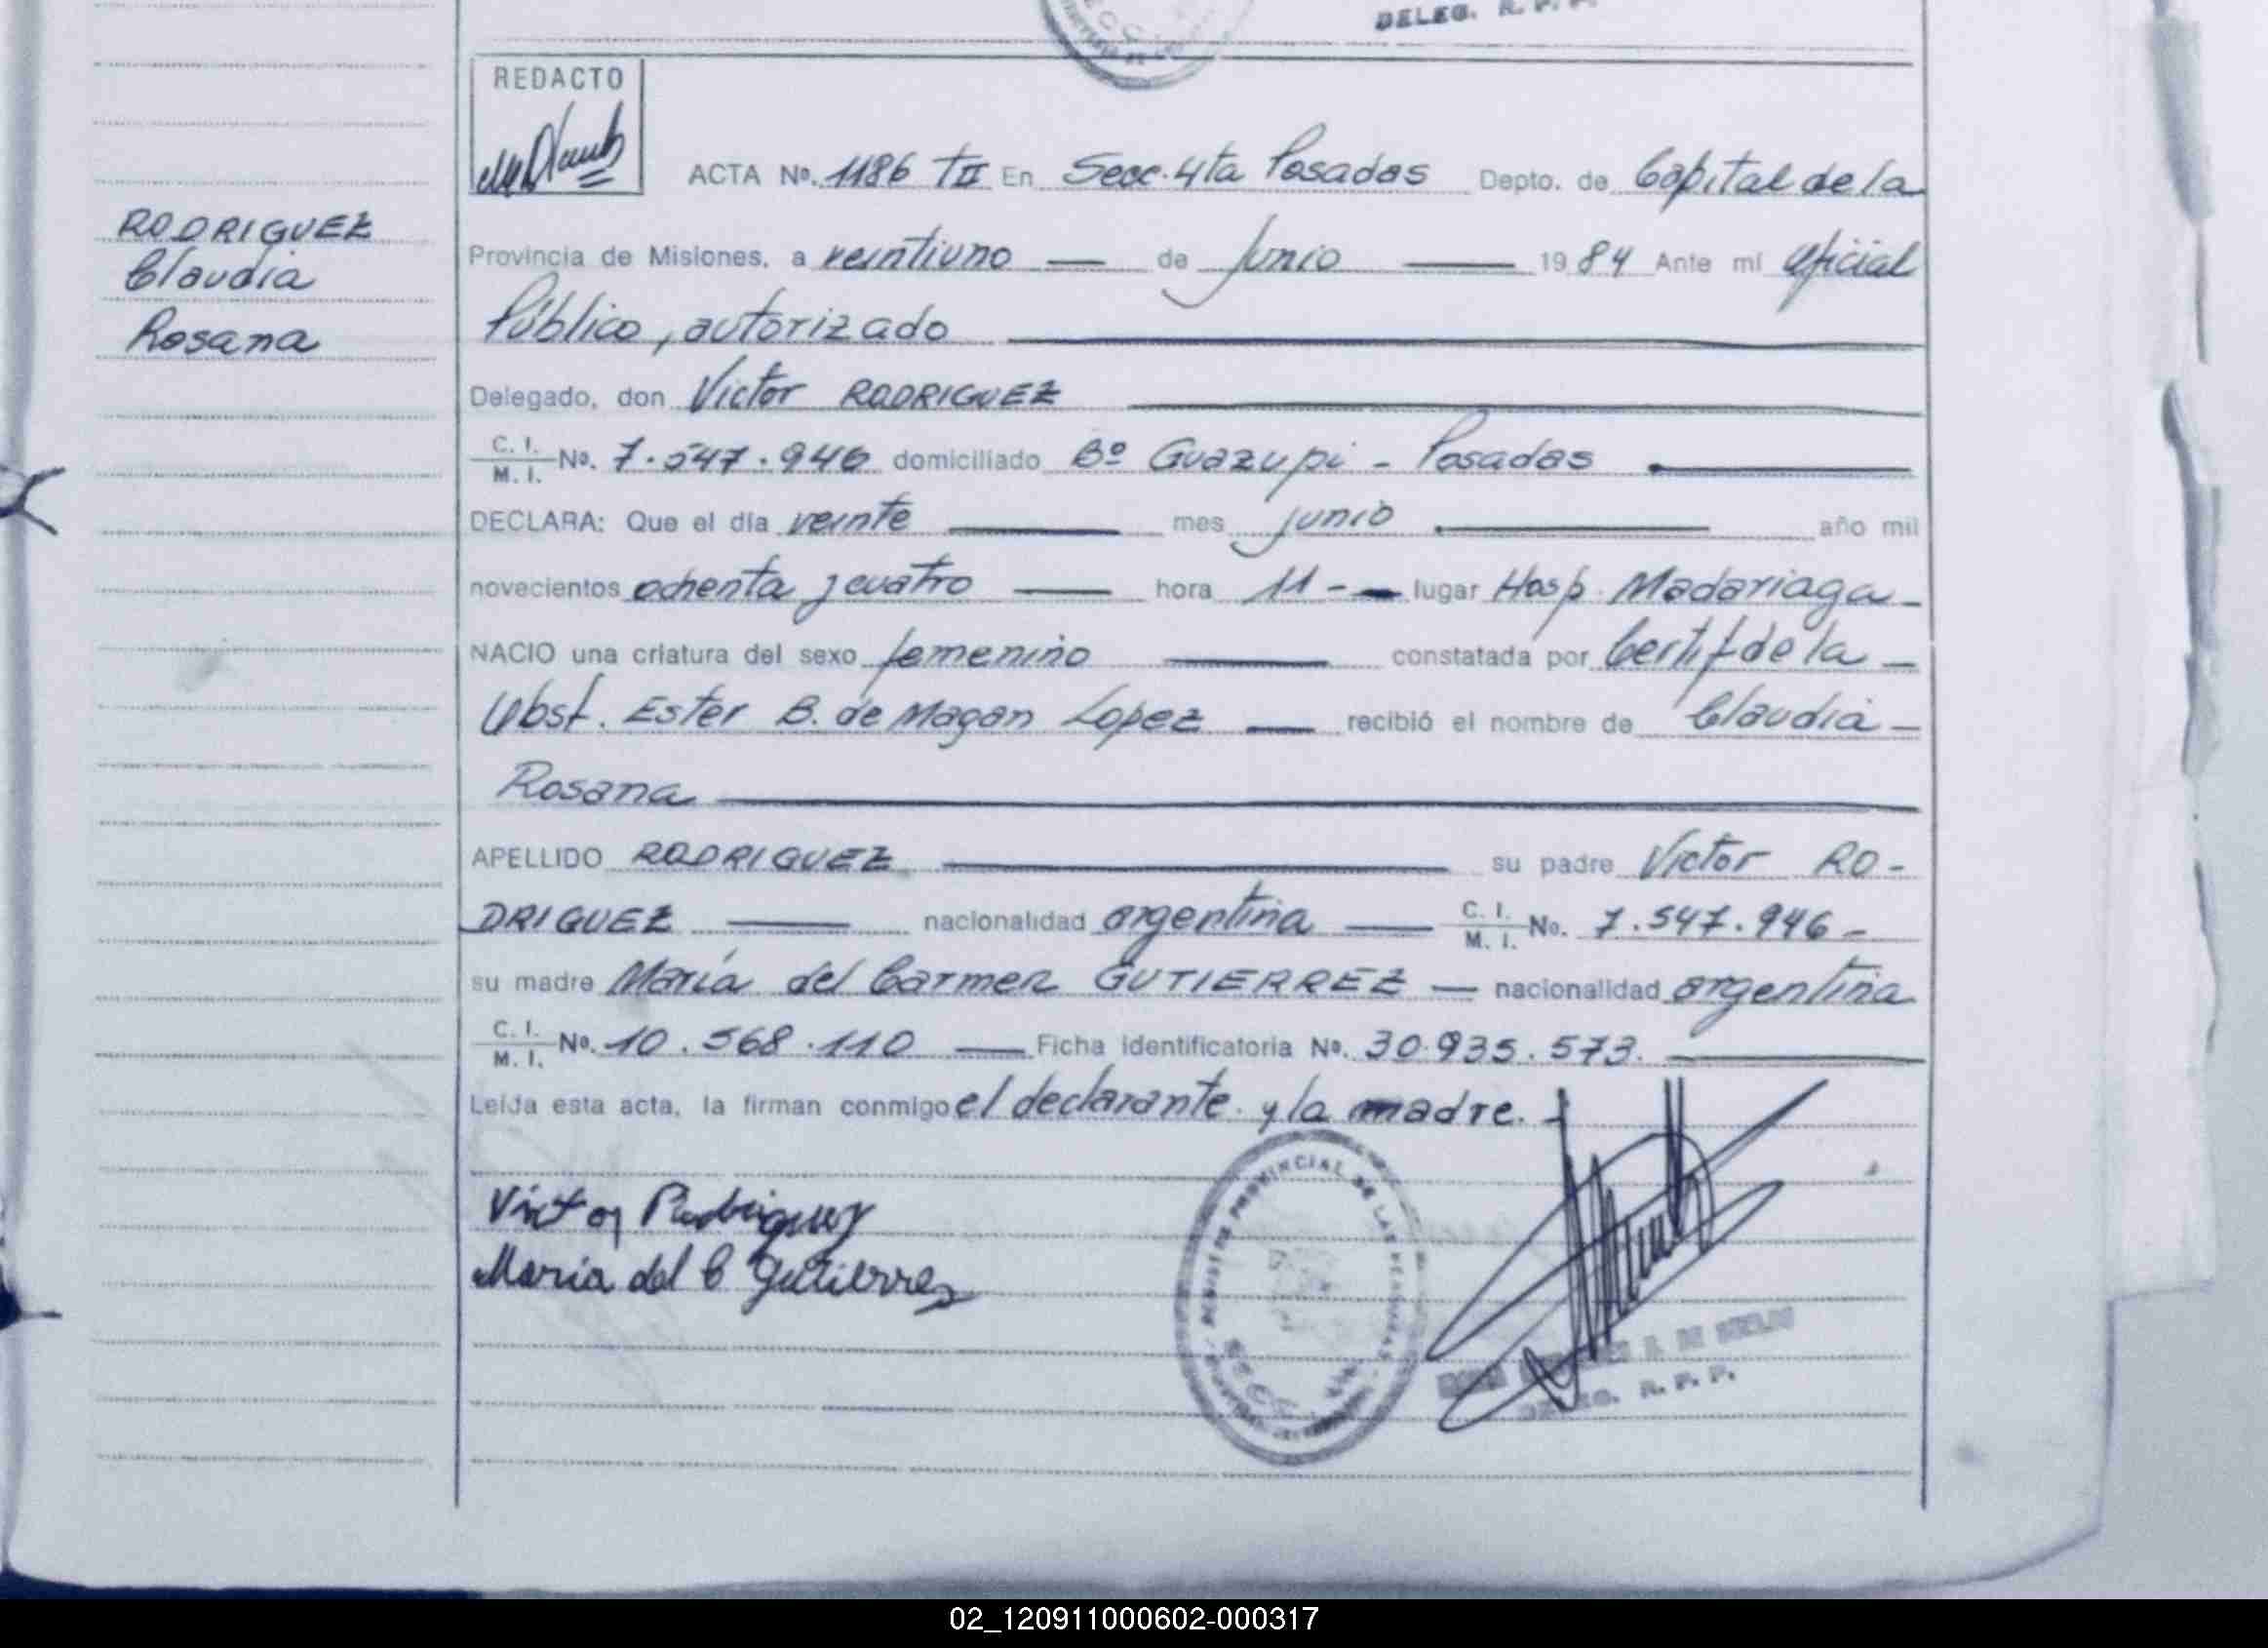 DELEG. R. P. P.
REDACTO
ACTA Nº. 1186 TII En Secc. 4ta Posadas Depto. de Capital de la
RODRIGUEZ
Claudia
Rosana
Provincia de Misiones, a veintiuno — de Junio — 1984 Ante mí Oficial
Público, autorizado
Delegado, don Victor RODRIGUEZ
C. I. M. I. Nº. 7.547.946 domiciliado Bº Guazupi - Posadas
DECLARA: Que el día veinte — mes junio — año mil
novecientos ochenta y cuatro — hora 11 - — lugar Hosp. Madariaga -
NACIO una criatura del sexo femenino — constatada por Certif de la -
Obst. Ester B. de Magan Lopez — recibió el nombre de Claudia -
Rosana
APELLIDO RODRIGUEZ — su padre Victor RO-
DRIGUEZ — nacionalidad argentina — C. I. M. I. No. 7.547.946 -
su madre María del Carmen GUTIERREZ — nacionalidad argentina
C. I. M. I. Nº. 10.568.110 — Ficha Identificatoria Nº. 30.935.573.
Leída esta acta, la firman conmigo el declarante. y la madre. -
Victor Rodriguez
Maria del C Gutierrez
REGISTRO PROVINCIAL DE LAS PERSONAS
DELEG. R. P. P.
02_120911000602-000317